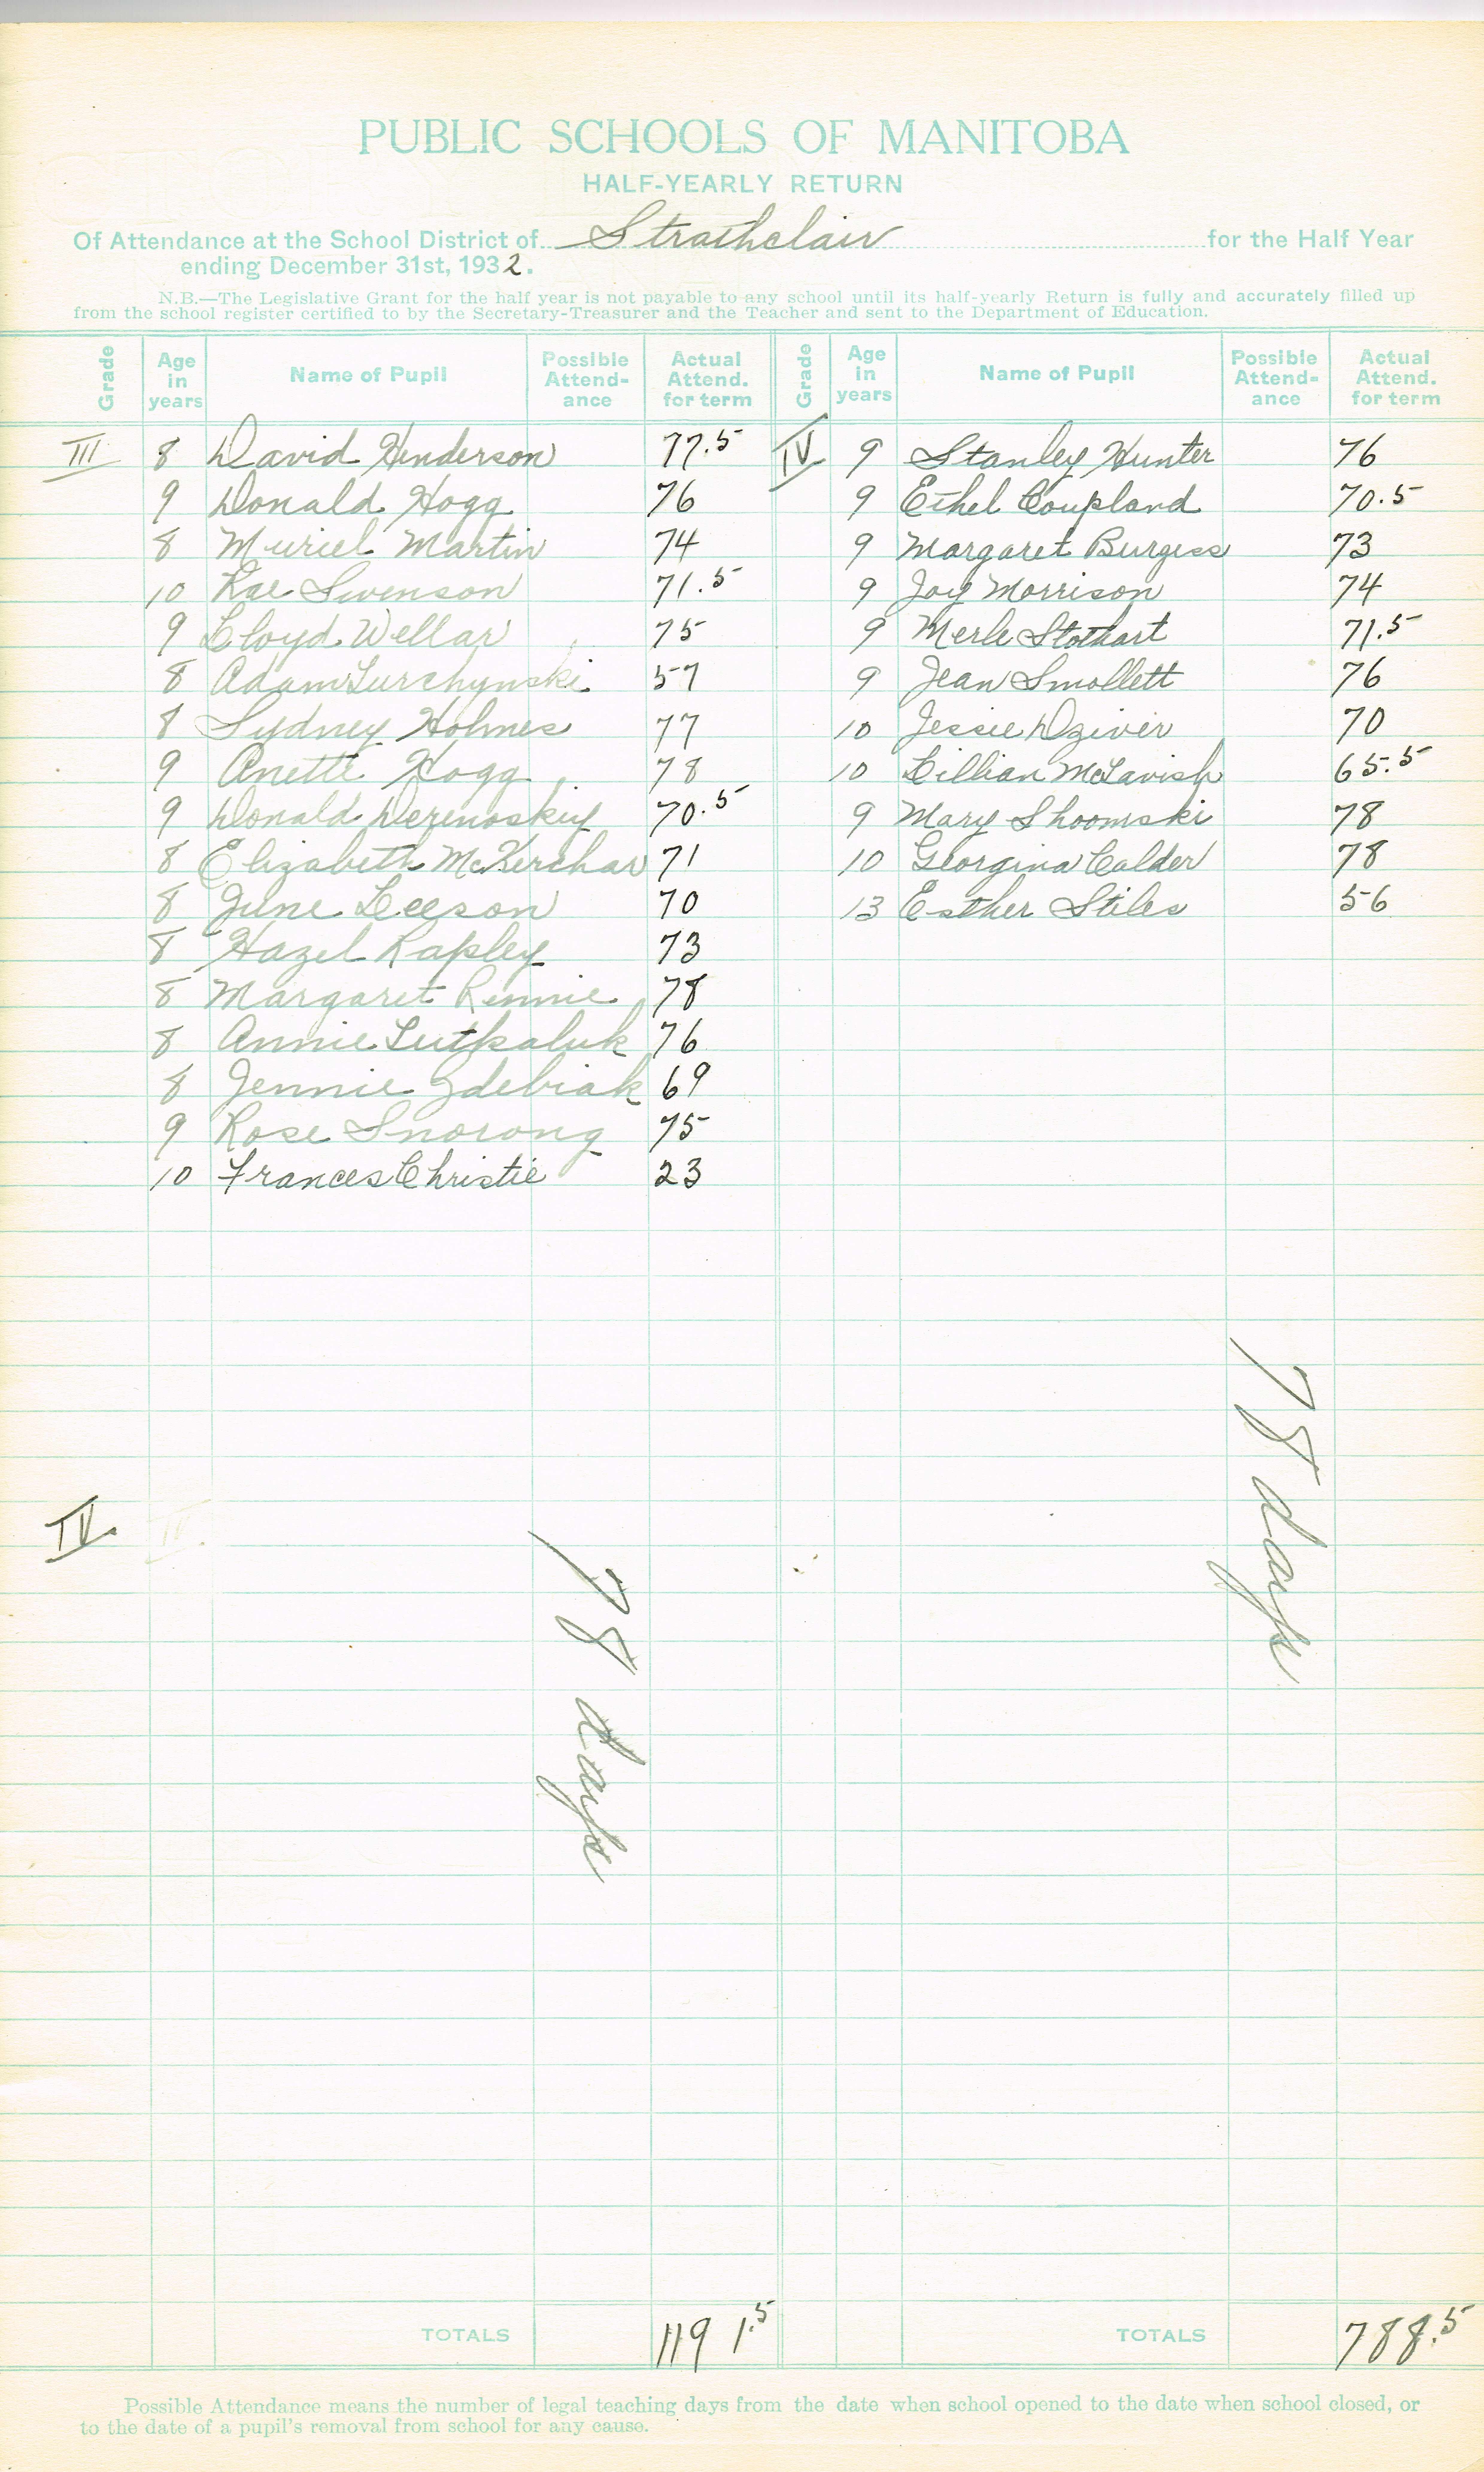 PUBLIC SCHOOLS OF MANITOBA
HALF-YEARLY RETURN
Of Attendance at the School District of Strathclair for the Half Year
ending December 31st, 1932.
N.B.—The Legislative Grant for the half year is not payable to any school until its half-yearly Return is fully and accurately filled up
from the school register certified to by the Secretary-Treasurer and the Teacher and sent to the Department of Education.
Grade Age in years Name of Pupil Possible Attend-ance Actual Attend. for term
III 8 David Henderson 77.5
9 Donald Hogg 76
8 Muriel Martin 74
10 Rae Swenson 71.5
9 Lloyd Wellar 75
8 Adam Turchynski 57
8 Sydney Holmes 77
9 Anette Hogg 78
9 Donald Derenoskiy 70.5
8 Elizabeth McKerchar 71
8 June Leeson 70
8 Hazel Rapley 73
8 Margaret Rennie 78
8 Annie Lutkaluk 76
8 Jennie Zdebiak 69
9 Rose Snorong 75
10 Frances Christie 23
IV.
78 days
TOTALS 1191.5
Grade Age in years Name of Pupil Possible Attend-ance Actual Attend. for term
IV 9 Stanley Hunter 76
9 Ethel Coupland 70.5
9 Margaret Burgess 73
9 Joy Morrison 74
9 Merle Stothart 71.5
9 Jean Smollett 76
10 Jessie Dziver 70
10 Lillian McTavish 65.5
9 Mary Shoomski 78
10 Georgina Calder 78
13 Esther Stiles 56
78 days
TOTALS 788.5
Possible Attendance means the number of legal teaching days from the date when school opened to the date when school closed, or
to the date of a pupil's removal from school for any cause.